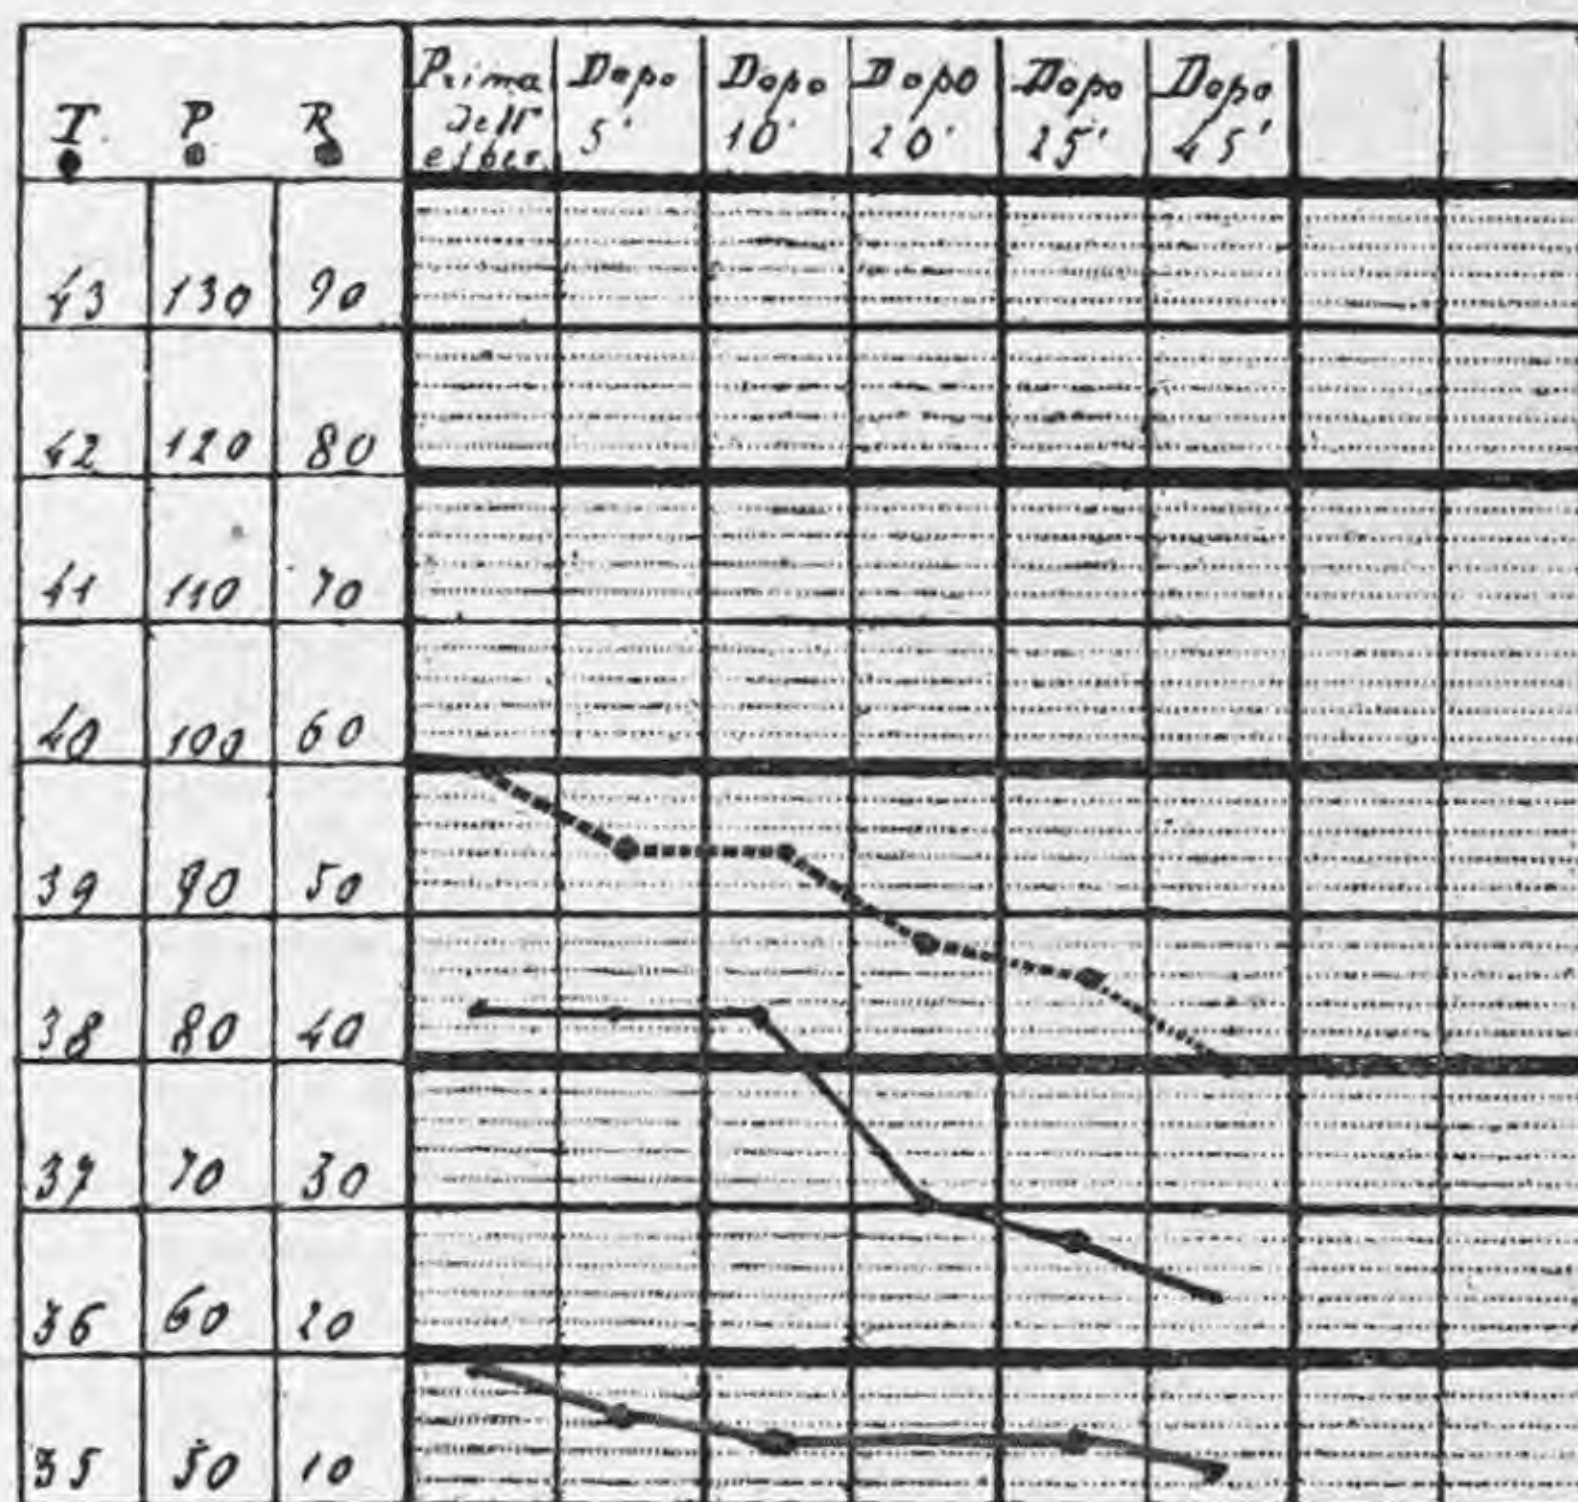 T P R
Prima dell' esper.
Dopo 5'
Dopo 10'
Dopo 20'
Dopo 25'
Dopo 45'
43 130 90
42 120 80
41 110 70
40 100 60
39 90 50
38 80 40
37 70 30
36 60 20
35 50 10